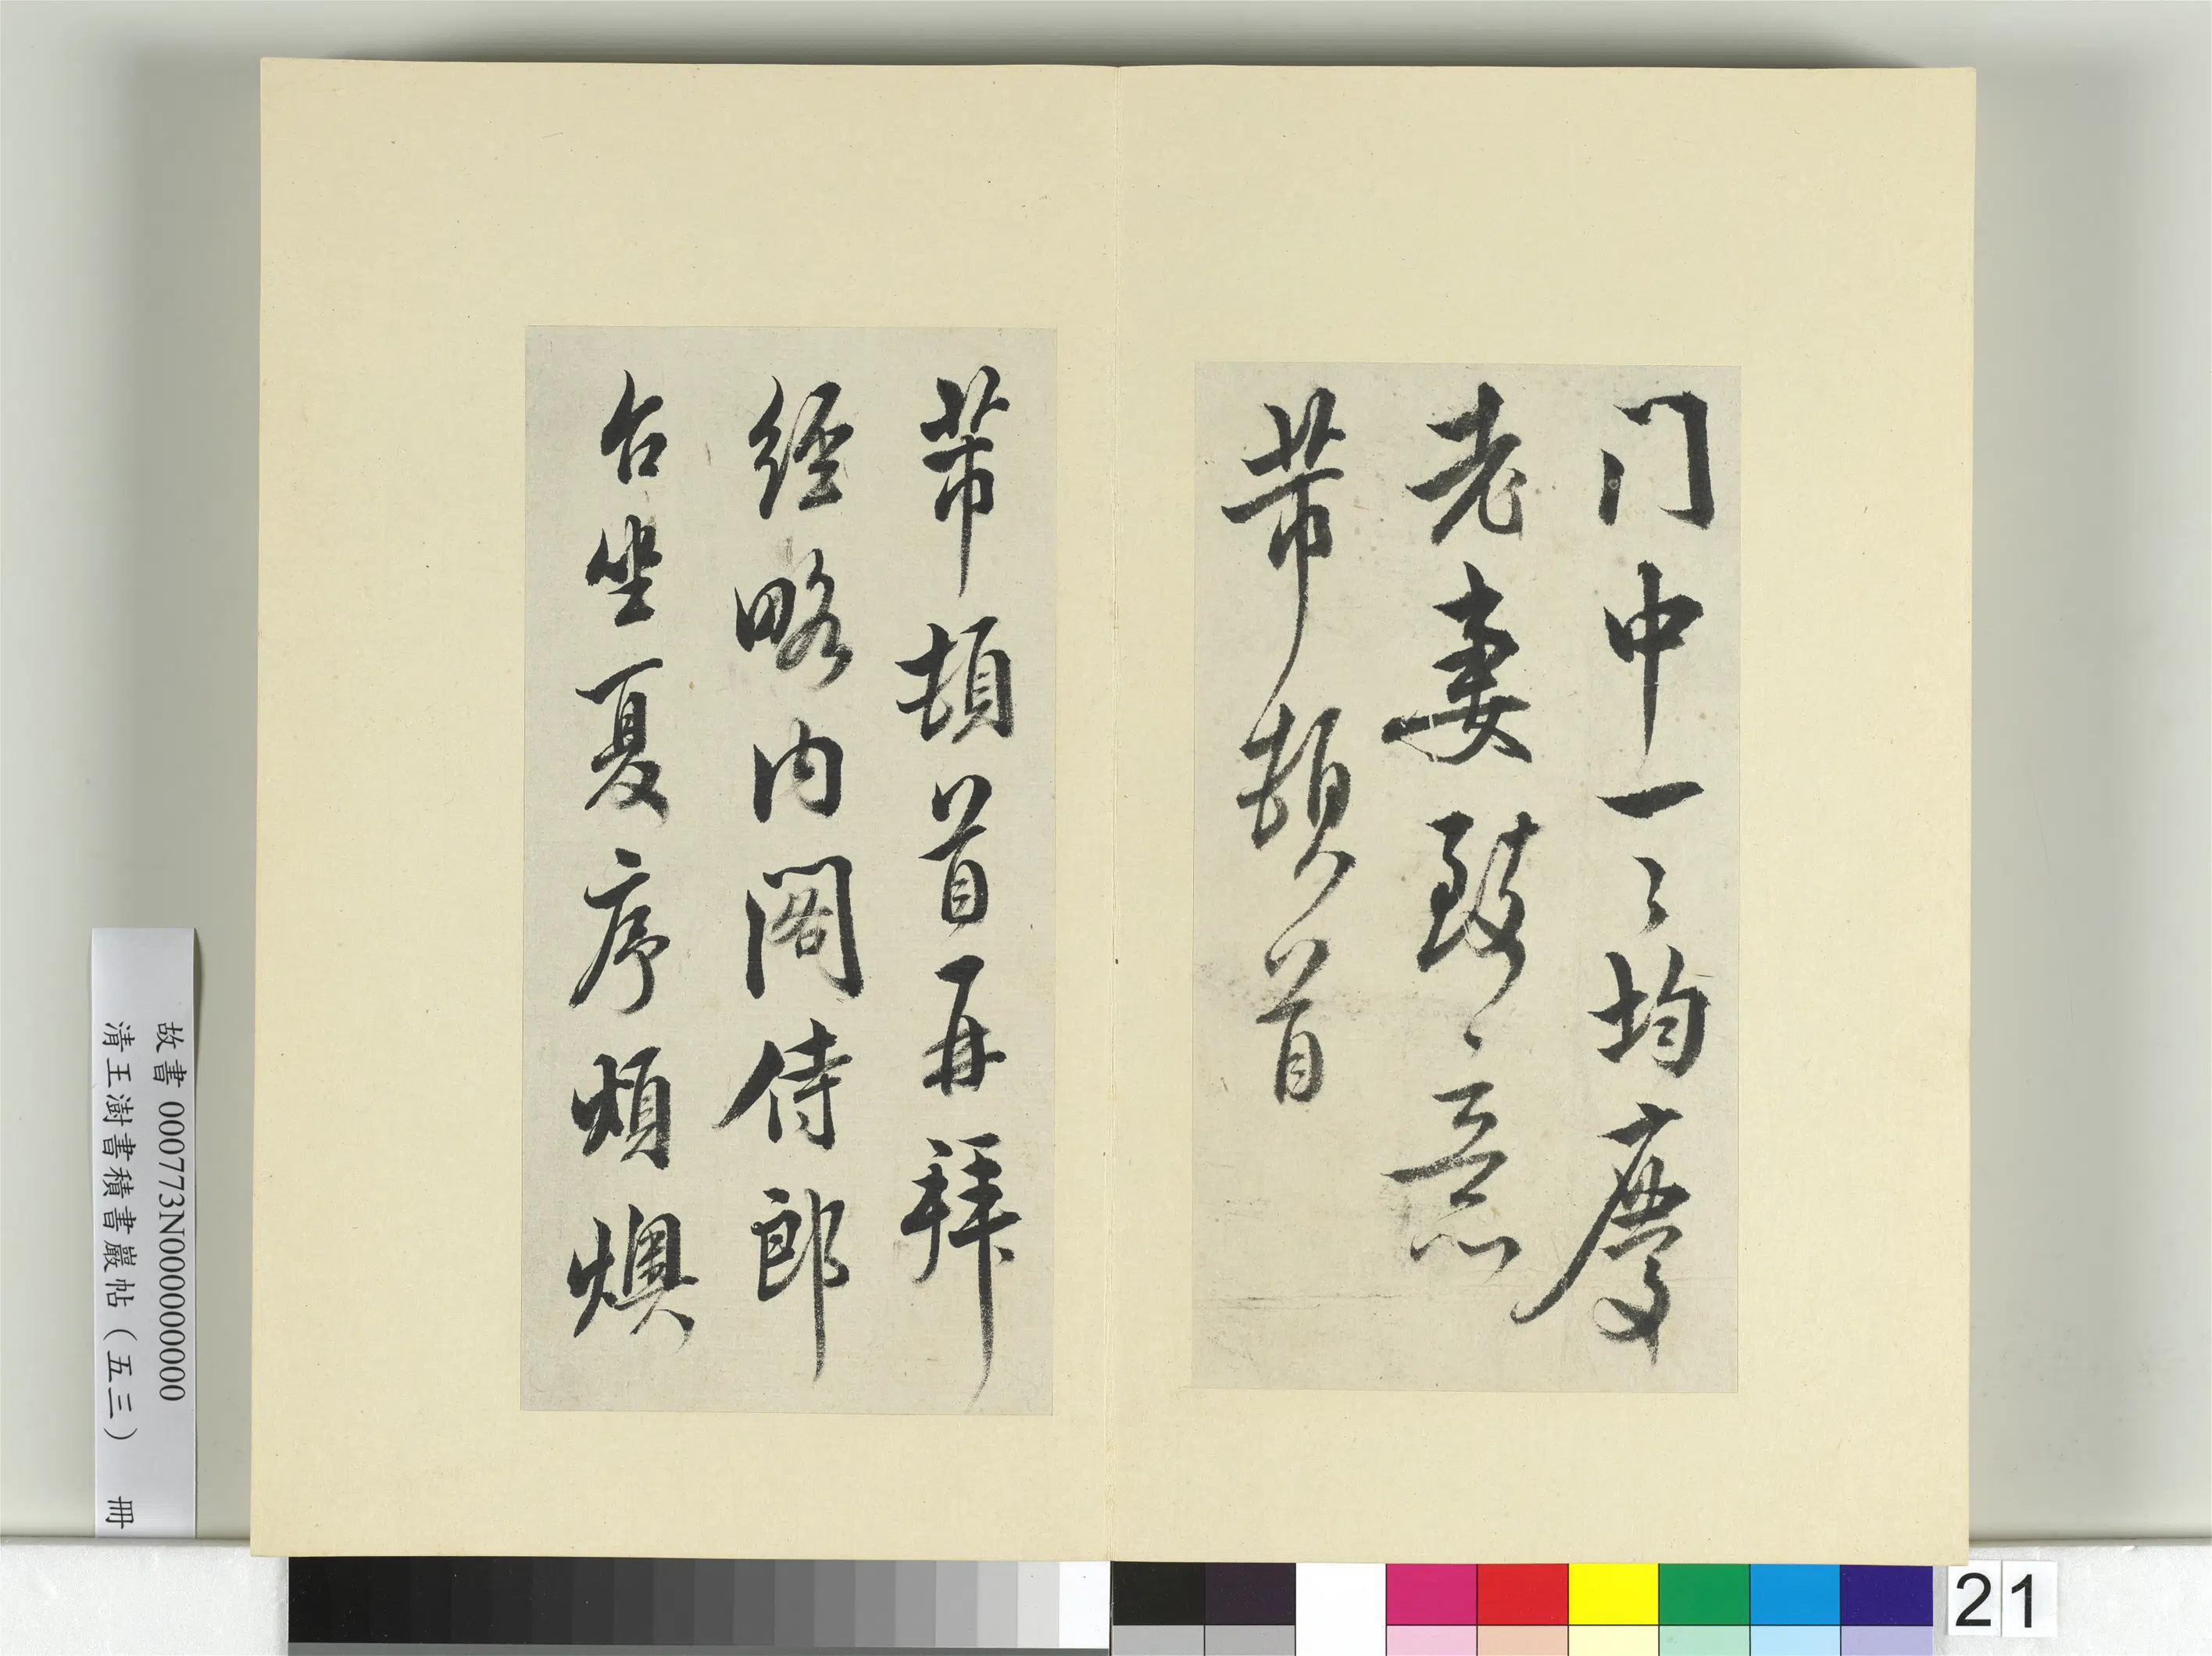 门中一々均慶
老妻致意
芾頓首
芾頓首再拜
經略内閣侍郎
台坐夏序煩燠
故書 000773N000000000
清王澍書積書巖帖（五三） 冊
21